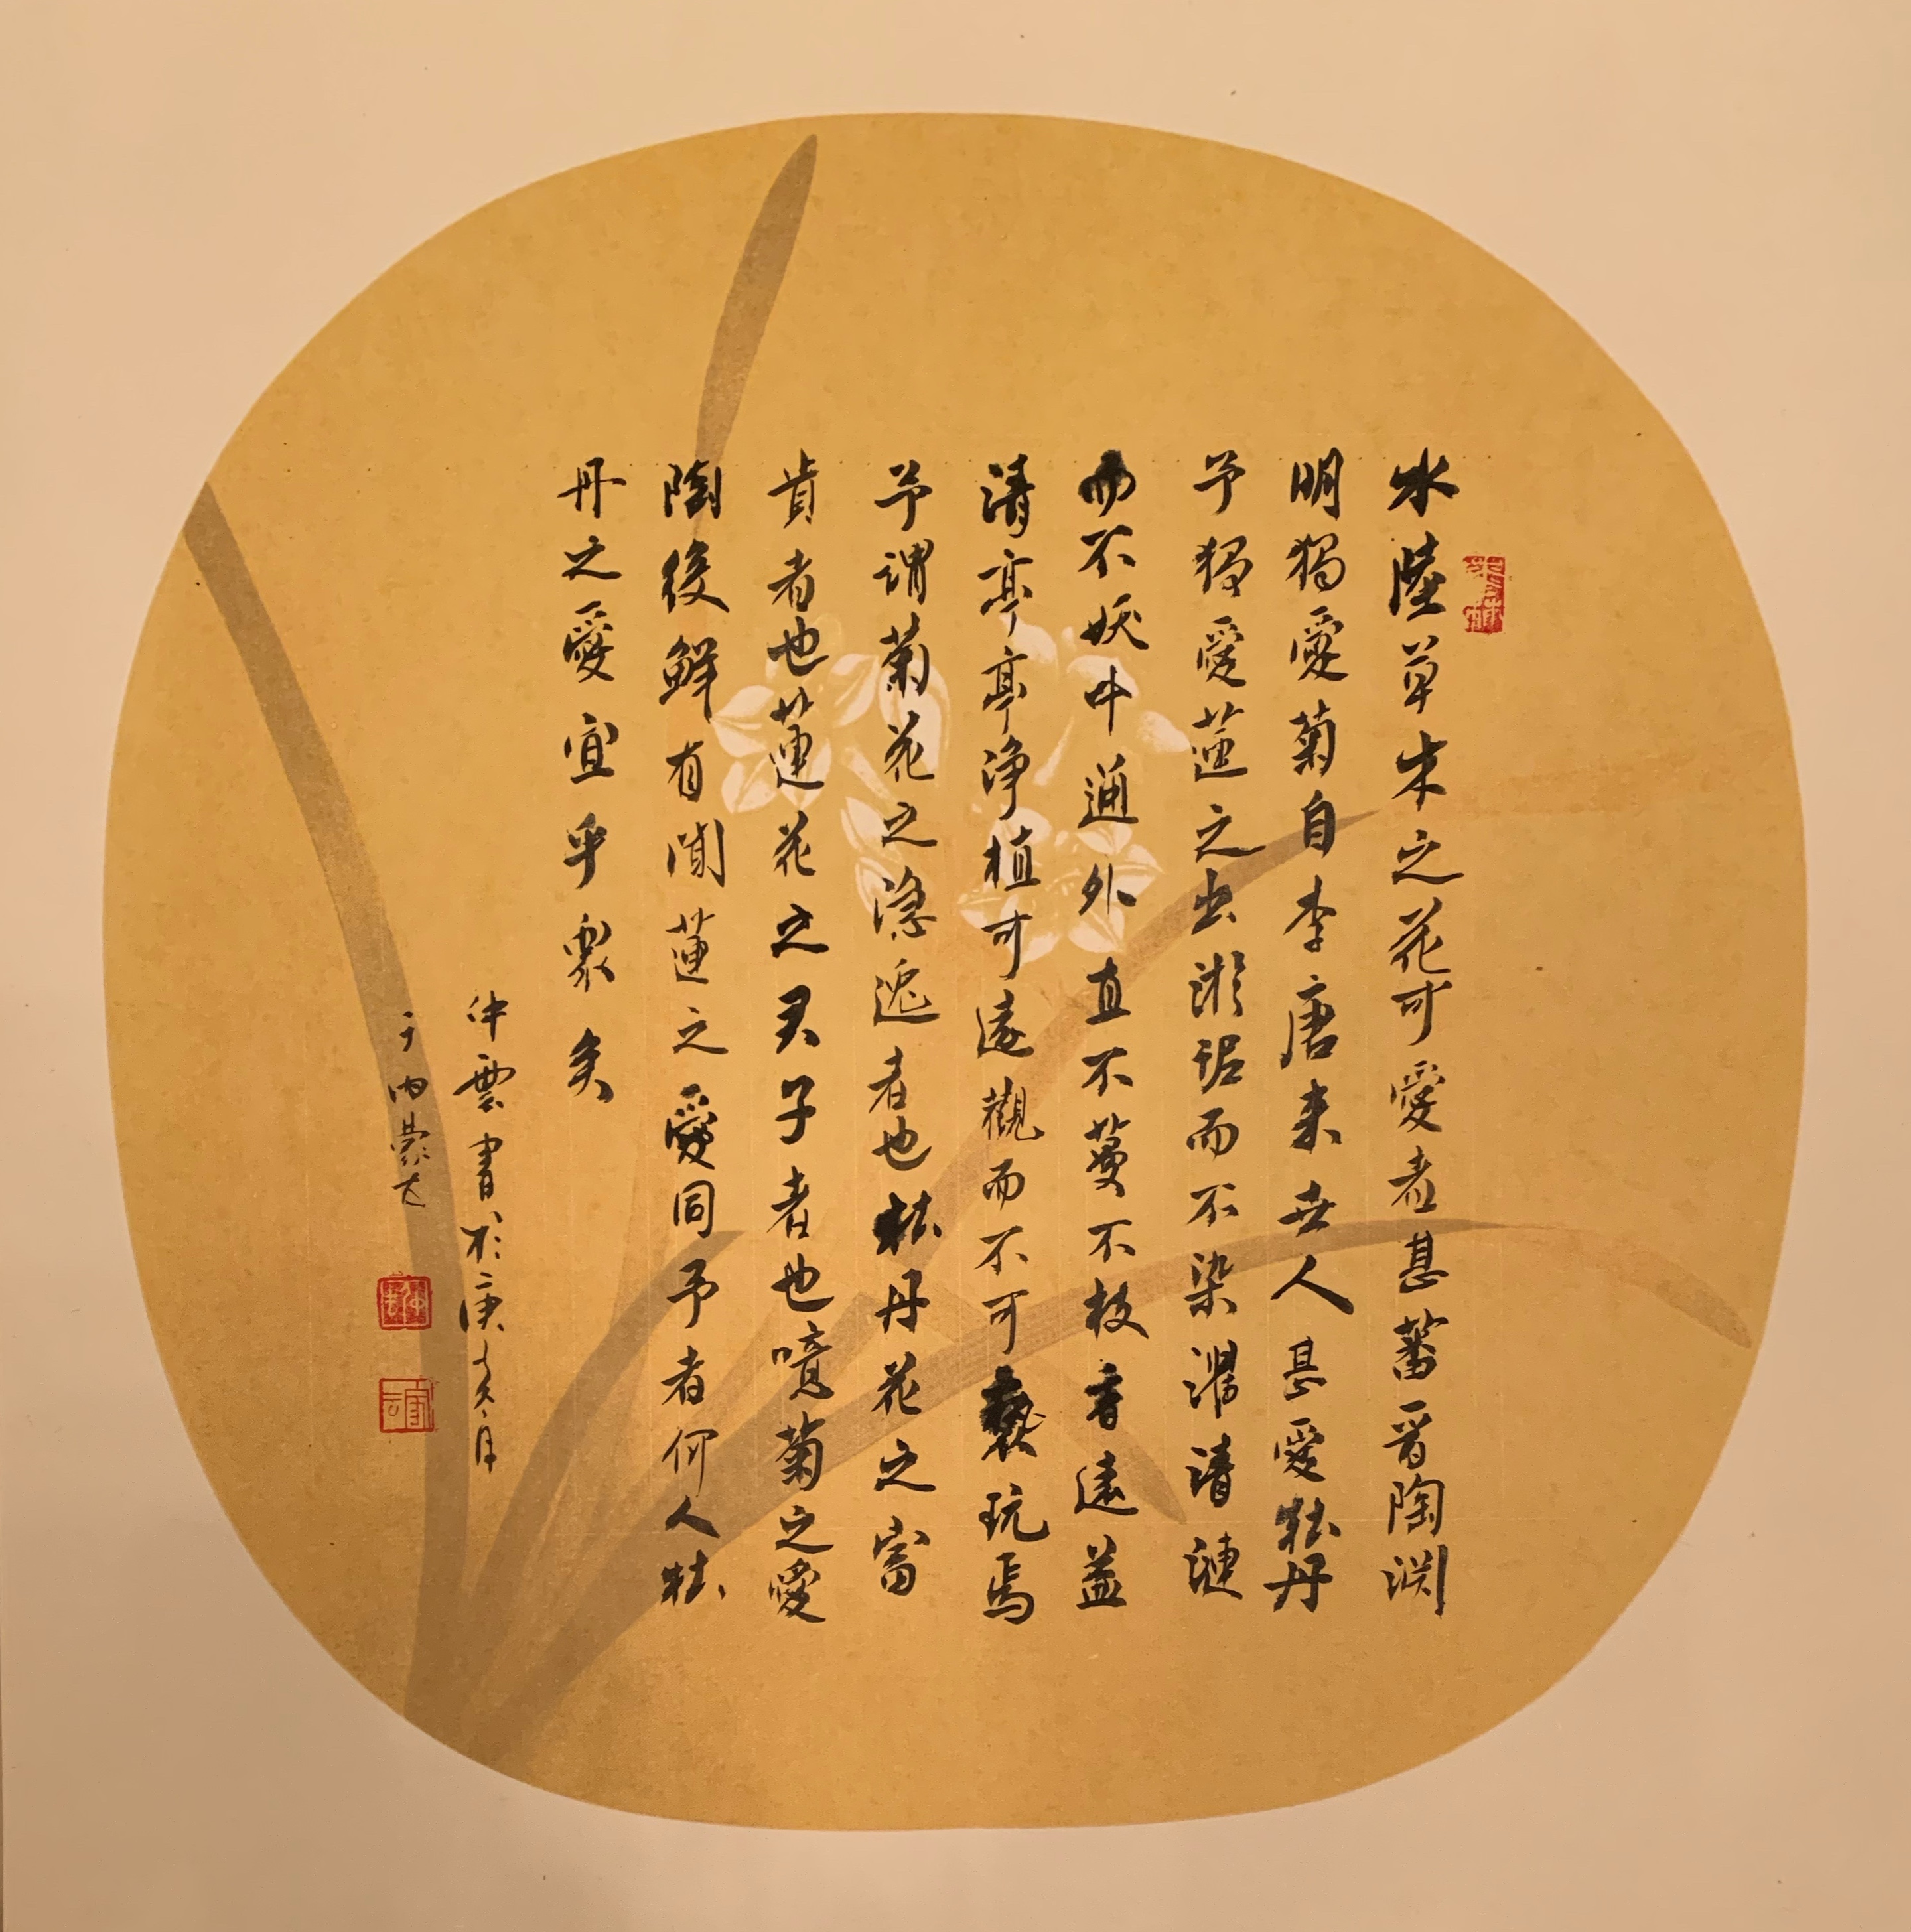 水陸草木之花可愛者甚蕃晋陶渊
明獨愛菊自李唐来世人甚愛牡丹
予獨愛蓮之出淤垢而不染濯清漣
而不妖中通外直不蔓不枝香遠益
清亭亭净植可遠觀而不可褻玩焉
予謂菊花之隱逸者也牡丹花之富
貴者也蓮花之君子者也噫菊之愛
陶後鮮有聞蓮之愛同予者何人牡
丹之愛宜乎衆矣
仲雲書於庚月
于内蒙古